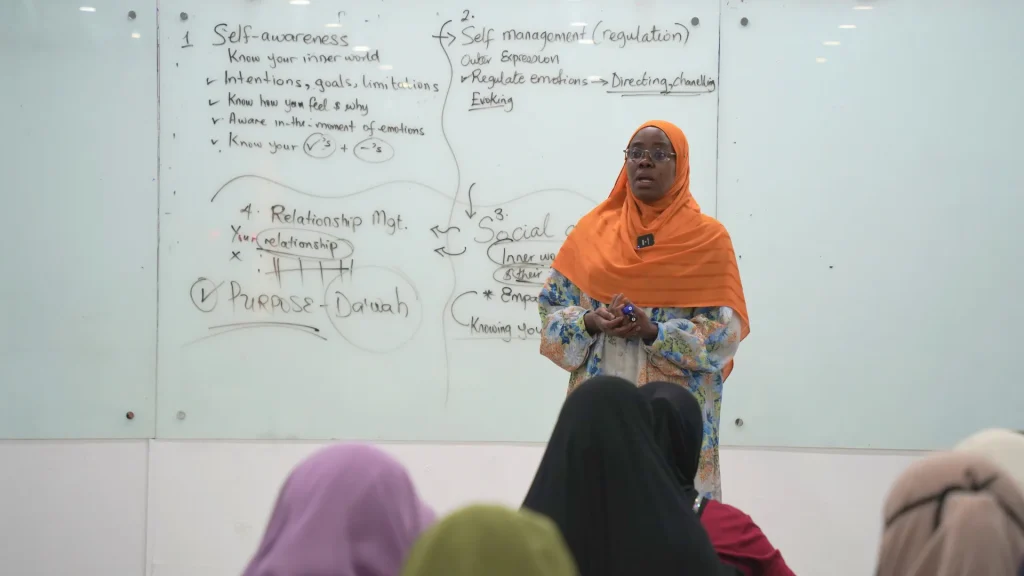 1 Self-awareness
Know your inner world
✓ Intentions, goals, limitations
✓ Know how you feel & why
✓ Aware in-the-moment of emotions
✓ Know your ✓'s + -'s
2.
Self management (regulation)
Outer Expression
✓ Regulate emotions → Directing, chanelling
Evoking
3.
Social
Inner wo
& their
* Empa
Knowing you
4. Relationship Mgt.
relationship
✓ PURPOSE - Da'wah